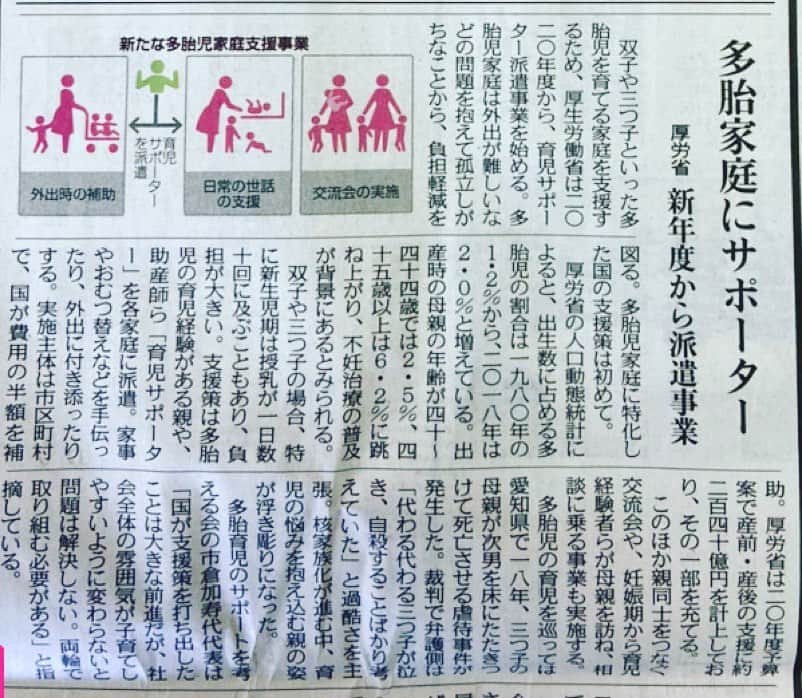 多胎家庭にサポーター
厚労省 新年度から派遣事業
双子や三つ子といった多
胎児を育てる家庭を支援す
るため、厚生労働省は二〇
二〇年度から、育児サポー
ター派遣事業を始める。多
胎児家庭は外出が難しいな
どの問題を抱えて孤立しが
ちなことから、負担軽減を
新たな多胎児家庭支援事業
外出時の補助
育児
サポーター
を派遣
日常の世話
の支援
交流会の実施
図る。多胎児家庭に特化し
た国の支援策は初めて。
厚労省の人口動態統計に
よると、出生数に占める多
胎児の割合は一九八〇年の
1・2%から、二〇一八年は
2・0%と増えている。出
産時の母親の年齢が四十〜
四十四歳では2・5%、四
十五歳以上は6・2%に跳
ね上がり、不妊治療の普及
が背景にあるとみられる。
双子や三つ子の場合、特
に新生児期は授乳が一日数
十回に及ぶこともあり、負
担が大きい。支援策は多胎
児の育児経験がある親や、
助産師ら「育児サポータ
ー」を各家庭に派遣。家事
やおむつ替えなどを手伝っ
たり、外出に付き添ったり
する。実施主体は市区町村
で、国が費用の半額を補
助。厚労省は二〇年度予算
案で産前・産後の支援に約
二百四十億円を計上してお
り、その一部を充てる。
このほか親同士をつなぐ
交流会や、妊娠期から育児
経験者らが母親を訪ね、相
談に乗る事業も実施する。
多胎児の育児を巡っては
愛知県で一八年、三つ子の
母親が次男を床にたたきつ
けて死亡させる虐待事件が
発生した。裁判で弁護側は
「代わる代わる三つ子が泣
き、自殺することばかり考
えていた」と過酷さを主
張。核家族化が進む中、育
児の悩みを抱え込む親の姿
が浮き彫りになった。
多胎育児のサポートを考
える会の市倉加寿代代表は
「国が支援策を打ち出した
ことは大きな前進だが、社
会全体の雰囲気が子育てし
やすいように変わらないと
問題は解決しない。両輪で
取り組む必要がある」と指
摘している。